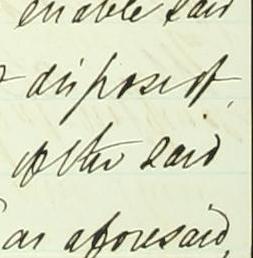 enable said
dispose of,
after said
as aforesaid,